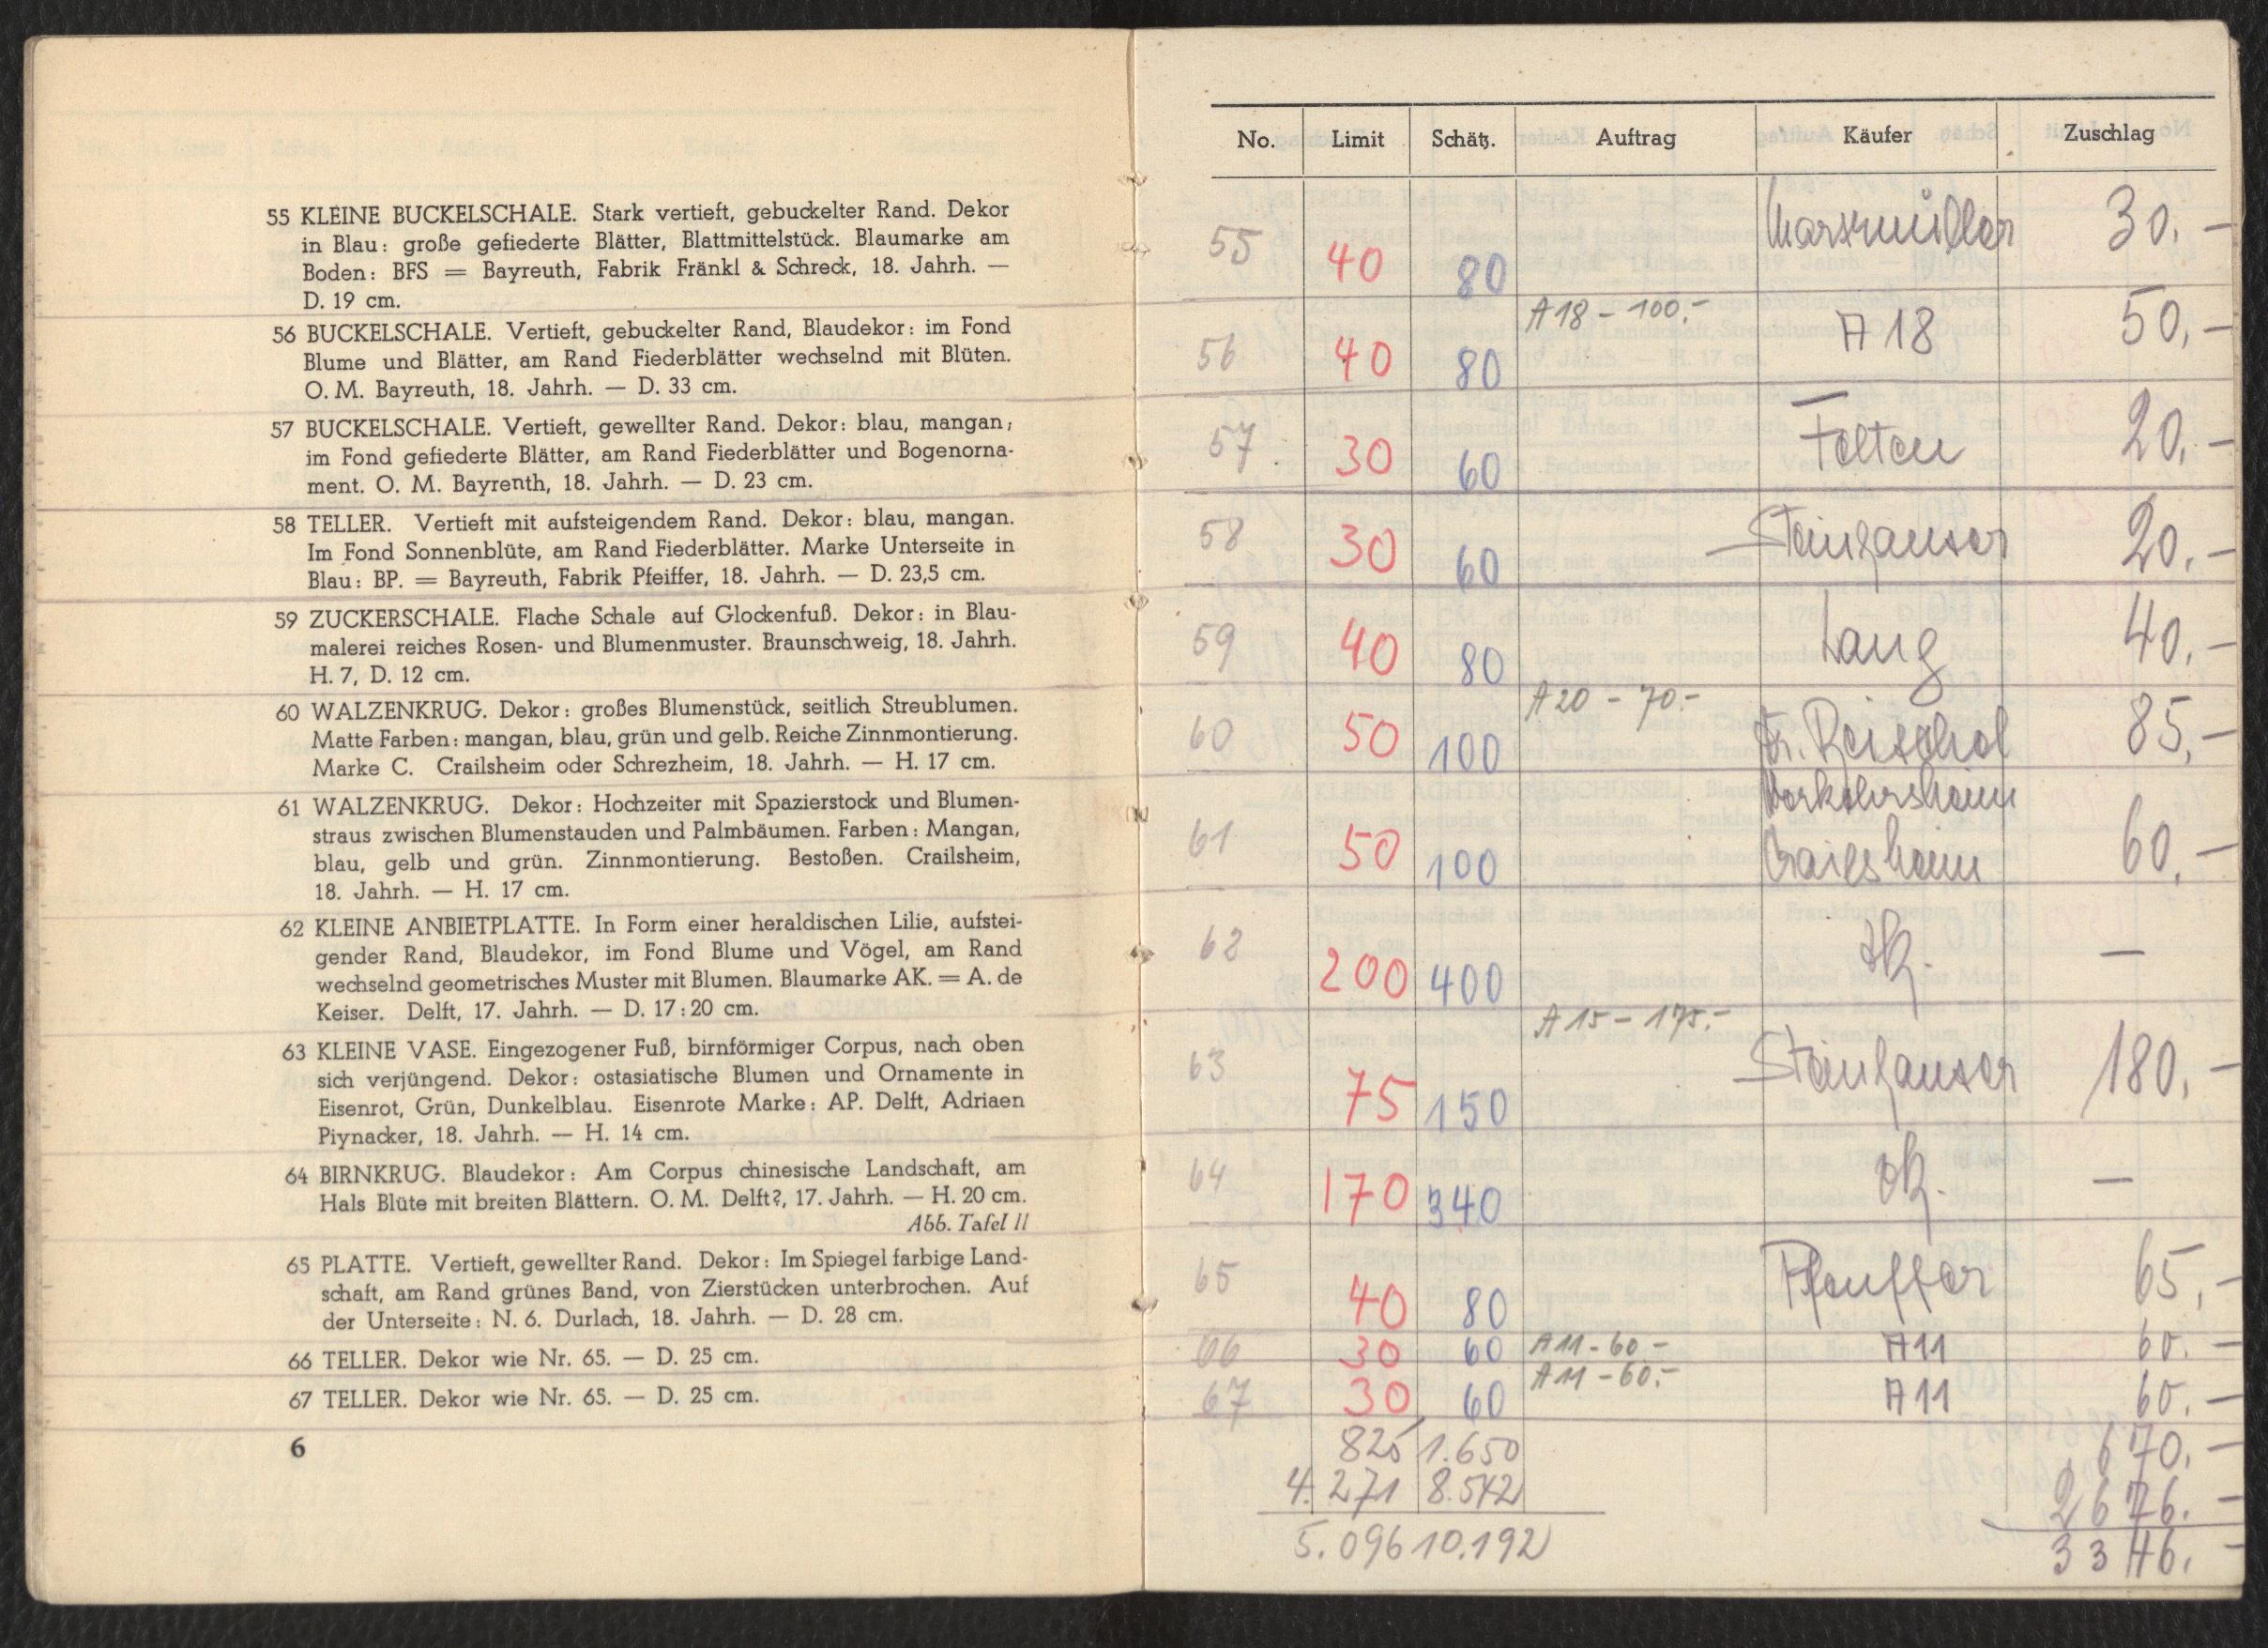 55 KLEINE BUCKELSCHALE. Stark vertieft, gebuckelter Rand. Dekor
in Blau: große gefiederte Blätter, Blattmittelstück. Blaumarke am
Boden: BFS = Bayreuth, Fabrik Fränkl & Schreck, 18. Jahrh. —
D. 19 cm.
56 BUCKELSCHALE. Vertieft, gebuckelter Rand, Blaudekor: im Fond
Blume und Blätter, am Rand Fiederblätter wechselnd mit Blüten.
O. M. Bayreuth, 18. Jahrh. — D. 33 cm.
57 BUCKELSCHALE. Vertieft, gewellter Rand. Dekor: blau, mangan;
im Fond gefiederte Blätter, am Rand Fiederblätter und Bogenorna-
ment. O. M. Bayrenth, 18. Jahrh. — D. 23 cm.
58 TELLER. Vertieft mit aufsteigendem Rand. Dekor: blau, mangan.
Im Fond Sonnenblüte, am Rand Fiederblätter. Marke Unterseite in
Blau: BP. = Bayreuth, Fabrik Pfeiffer, 18. Jahrh. — D. 23,5 cm.
59 ZUCKERSCHALE. Flache Schale auf Glockenfuß. Dekor: in Blau-
malerei reiches Rosen- und Blumenmuster. Braunschweig, 18. Jahrh.
H. 7, D. 12 cm.
60 WALZENKRUG. Dekor: großes Blumenstück, seitlich Streublumen.
Matte Farben: mangan, blau, grün und gelb. Reiche Zinnmontierung.
Marke C. Crailsheim oder Schrezheim, 18. Jahrh. — H. 17 cm.
61 WALZENKRUG. Dekor: Hochzeiter mit Spazierstock und Blumen-
straus zwischen Blumenstauden und Palmbäumen. Farben: Mangan,
blau, gelb und grün. Zinnmontierung. Bestoßen. Crailsheim,
18. Jahrh. — H. 17 cm.
62 KLEINE ANBIETPLATTE. In Form einer heraldischen Lilie, aufstei-
gender Rand, Blaudekor, im Fond Blume und Vögel, am Rand
wechselnd geometrisches Muster mit Blumen. Blaumarke AK. = A. de
Keiser. Delft, 17. Jahrh. — D. 17:20 cm.
63 KLEINE VASE. Eingezogener Fuß, birnförmiger Corpus, nach oben
sich verjüngend. Dekor: ostasiatische Blumen und Ornamente in
Eisenrot, Grün, Dunkelblau. Eisenrote Marke: AP. Delft, Adriaen
Piynacker, 18. Jahrh. — H. 14 cm.
64 BIRNKRUG. Blaudekor: Am Corpus chinesische Landschaft, am
Hals Blüte mit breiten Blättern. O. M. Delft?, 17. Jahrh. — H. 20 cm.
Abb. Tafel II
65 PLATTE. Vertieft, gewellter Rand. Dekor: Im Spiegel farbige Land-
schaft, am Rand grünes Band, von Zierstücken unterbrochen. Auf
der Unterseite: N. 6. Durlach, 18. Jahrh. — D. 28 cm.
66 TELLER. Dekor wie Nr. 65. — D. 25 cm.
67 TELLER. Dekor wie Nr. 65. — D. 25 cm.
6
No. Limit Schätz. Auftrag Käufer Zuschlag
55 40 80 30.-
56 40 80 A18 - 100.- A 18 50,-
57 30 60 Felten 20,-
58 30 60 Steinhauser 20,-
59 40 80 Lang 40,-
60 50 100 A20 - 70.- 85,-
61 50 100 60,-
62 200 400 —
63 75 150 A15 - 175.- Steinhauser 180,-
64 170 340 —
65 40 80 65,-
66 30 60 A11 - 60 - A11 60. -
67 30 60 A11 - 60.- A11 60. -
825 1.650 670. -
4.271 8.542 2676. -
5.096 10.192 3346. -